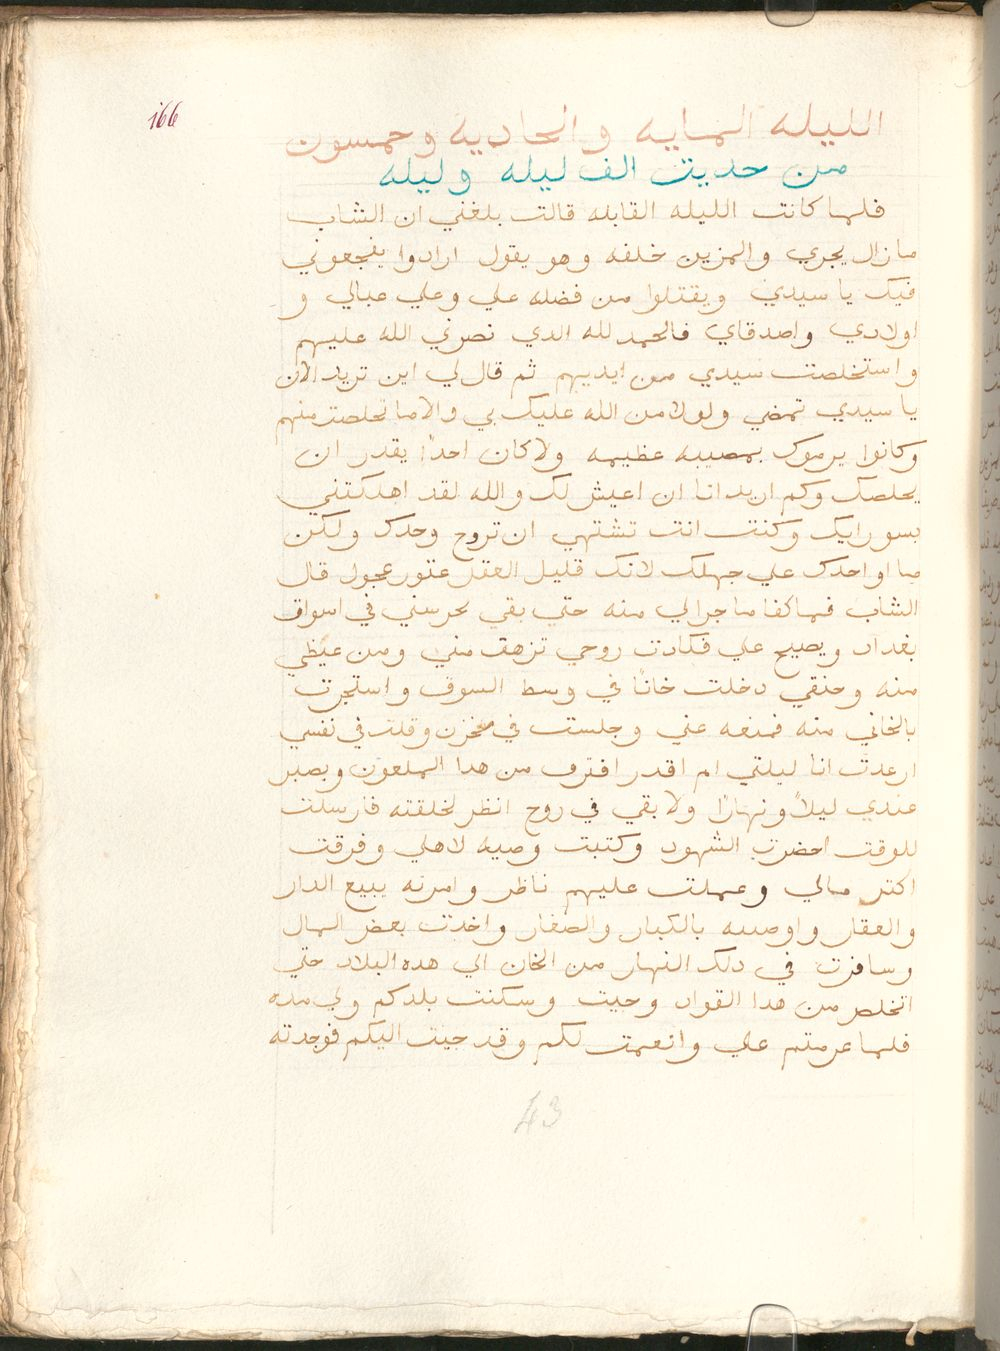 166
الليله المايه والحاديه وخمسون
من حديت الف ليله وليله
فلما كانت الليله القابله قالت بلغني ان الشاب
مازال يجري والمزين خلفه وهو يقول ارادوا يفجعوني
فيك يا سيدي ويقتلوا من فضله علي وعلي عيالي و
اولادي واصدقاي فالحمد لله الدي نصرني الله عليهم
واستخلصت سيدي من ايديهم ثم قال لي اين تريد الان
يا سيدي تمضي ولولا من الله عليك بي والا ما تخلصت منهم
وكانوا يرموك بمصيبه عظيمه ولا كان احدًا يقدر ان
يخلصك وكم اريد انا ان اعيش لك والله لقد اهلكتني
بسو رايك وكنت انت تشتهي ان تروح وحدك ولكن
ما اواخدك علي جهلك لانك قليل العقل عجول قال
الشاب فما كفا ما جرا لي منه حتي بقي يحرسني في اسواق
بغداد ويصيح علي فكادت روحي تزهق مني ومن غيظي
منه وحنقي دخلت خانًا في وسط السوق واستجرت
بالخاني منه فمنعه عني وجلست في مخزن وقلت في نفسي
ان عدت انا ليلتي لم اقدر افترق من هدا الملعون ويصير
عندي ليلاً ونهارًا ولا بقي في روح انظر لخلقته فارسلت
للوقت احضرت الشهود وكتبت وصيه لاهلي وفرقت
اكتر مالي وعملت عليهم ناظر وامرته يبيع الدار
والعقار واوصيته بالكبار والصغار واخدت بعض المال
وسافرت في دلك النهار من الخان الي هده البلاد حتي
اتخلص من هدا القواد وجيت وسكنت بلدكم ولي مده
فلما عزمتم علي وانعمت لكم وقد جيت اليكم فوجدته
43